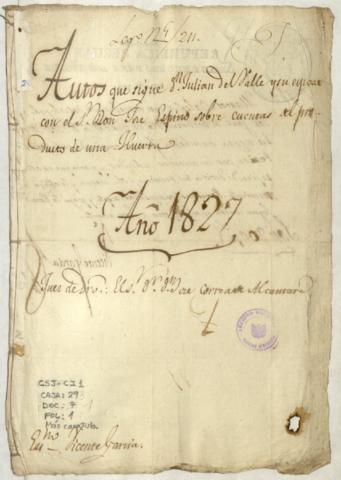 Leg.º N.º 211.
Autos que sigue Dⁿ. Julian del Valle y su esposa
con el S.ʳ Don Jose Espino sobre cuentas del pro-
ducto de una Huerta
Año 1827
Juez de Dro: El S.ʳ D.ʳ Dⁿ Jose Correa Alcantara
CSJ-CJ 1
CAJA: 29
DOC: 7
FOL: 1
Más carátula.
Es.ⁿᵒ Vicente Garcia.